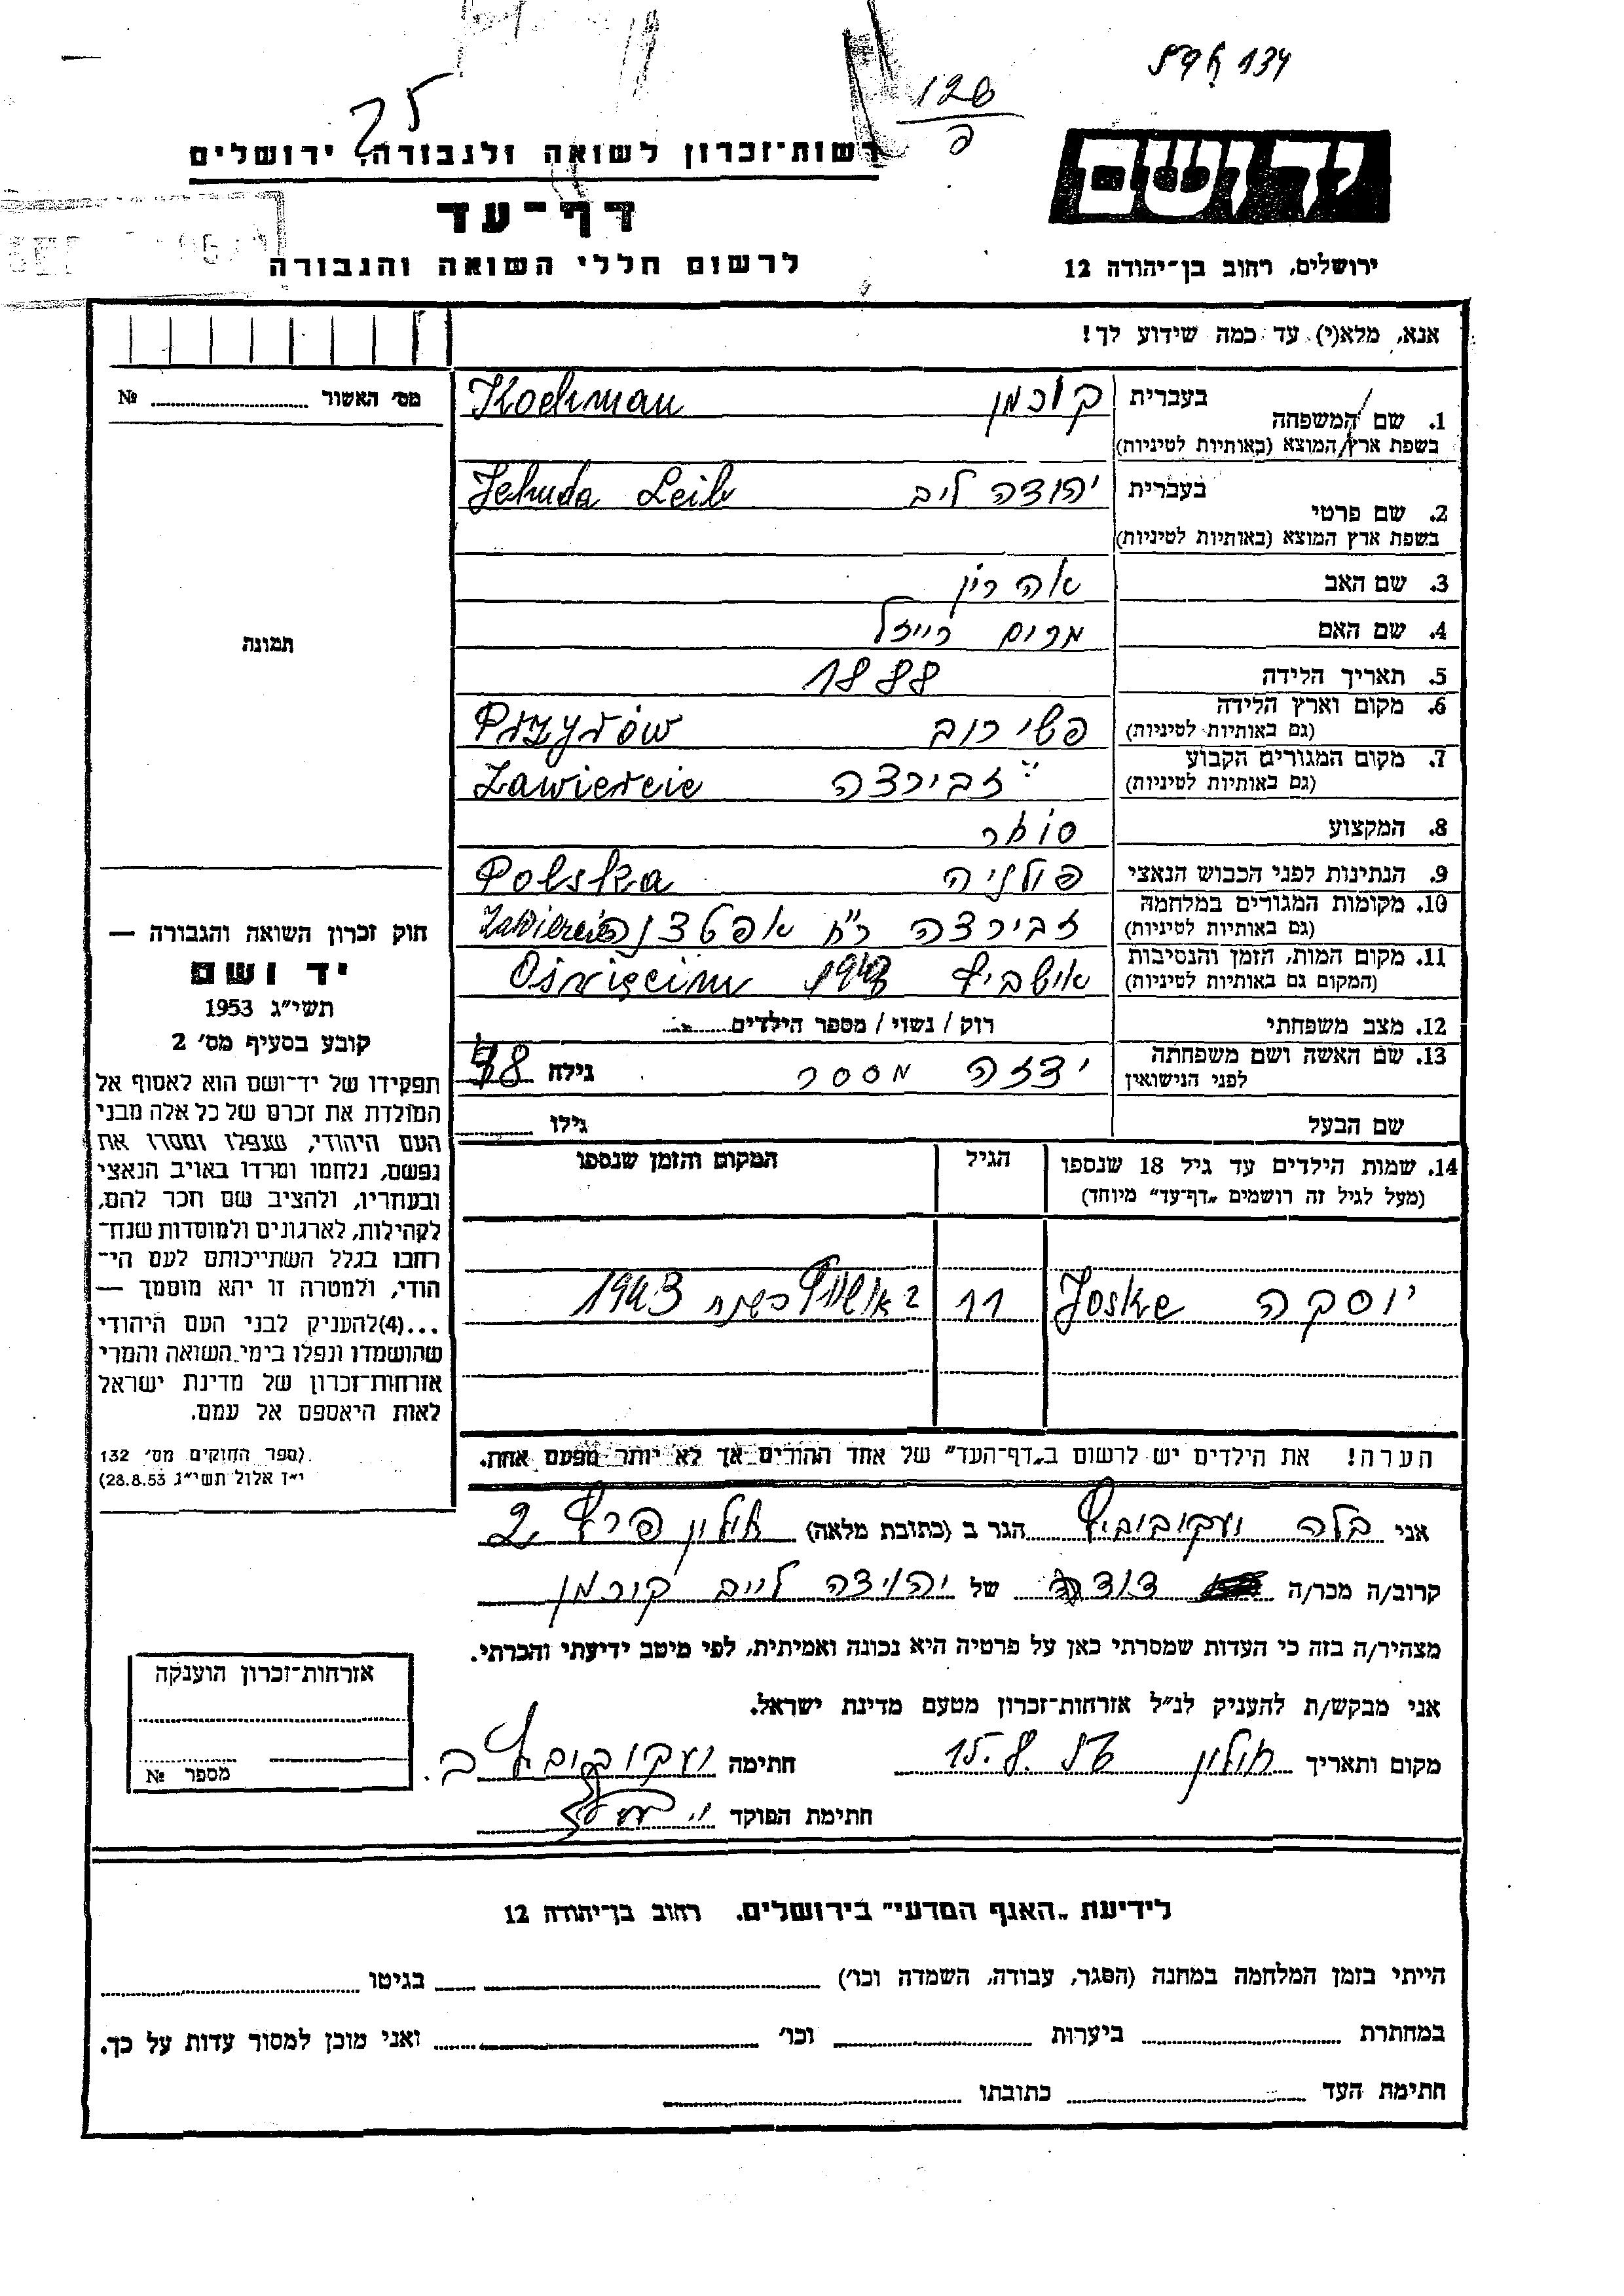 25
128
פ
רשות־זכרון לשואה ולגבורה, ירושלים
יד ושם
דף־עד
לרשום חללי השואה והגבורה
ירושלים, רחוב בן־יהודה 12
אנא, מלא(י) עד כמה שידוע לך!
מס׳ האשור № 
1. שם המשפחה בעברית קוכמן Kochman
בשפת ארץ המוצא (באותיות לטיניות)
2. שם פרטי בעברית יהודה ליב Jehuda Leib
בשפת ארץ המוצא (באותיות לטיניות)
3. שם האב אהרון
4. שם האם מרים רייזל
תמונה
5. תאריך הלידה 1888
6. מקום וארץ הלידה פשירוב Przyrów
(גם באותיות לטיניות)
7. מקום המגורים הקבוע זבירצה Zawiercie
(גם באותיות לטיניות)
8. המקצוע סוחר
9. הנתינות לפני הכבוש הנאצי פולניה Polska
10. מקומות המגורים במלחמה זבירצה רח׳ Zawiercie
(גם באותיות לטיניות)
11. מקום המות, הזמן והנסיבות אושביץ 1943 Oświęcim
(המקום גם באותיות לטיניות)
12. מצב משפחתי רוק / נשוי / מספר הילדים
13. שם האשה ושם משפחתה גילה 48
לפני הנישואין
שם הבעל גילו
14. שמות הילדים עד גיל 18 שנספו הגיל המקום והזמן שנספו
(מעל לגיל זה רושמים „דף־עד״ מיוחד)
יוסקה Joske 11 באושויץ בשנת 1943
הערה! את הילדים יש לרשום ב„דף־העד״ של אחד ההורים אך לא יותר מפעם אחת.
חוק זכרון השואה והגבורה —
יד ושם
תשי״ג 1953
קובע בסעיף מס׳ 2
תפקידו של יד־ושם הוא לאסוף אל
המולדת את זכרם של כל אלה מבני
העם היהודי, שנפלו ומסרו את
נפשם, נלחמו ומרדו באויב הנאצי
ובעוזריו, ולהציב שם וזכר להם,
לקהילות, לארגונים ולמוסדות שנח־
רבו בגלל השתייכותם לעם הי־
הודי, ולמטרה זו יהא מוסמך —
...(4)להעניק לבני העם היהודי
שהושמדו ונפלו בימי השואה והמרי
אזרחות־זכרון של מדינת ישראל
לאות היאספם אל עמם.
(ספר החוקים מס׳ 132
י״ז אלול תשי״ג 28.8.53)
אני בלה יעקובוביץ הגר ב (כתובת מלאה) חולון 2
קרוב/ה מכר/ה דודה של יהוידה לייב קוכמן
מצהיר/ה בזה כי העדות שמסרתי כאן על פרטיה היא נכונה ואמיתית, לפי מיטב ידיעתי והכרתי.
אני מבקש/ת להעניק לנ״ל אזרחות־זכרון מטעם מדינת ישראל.
מקום ותאריך חולון 15.8 חתימה יעקובוביץ ב.
חתימת הפוקד
אזרחות־זכרון הוענקה
מספר №
לידיעת „האגף המדעי״ בירושלים, רחוב בן־יהודה 12
הייתי בזמן המלחמה במחנה (הסגר, עבודה, השמדה וכו׳) בגיטו
במחתרת ביערות וכו׳ ואני מוכן למסור עדות על כך.
חתימת העד כתובתו